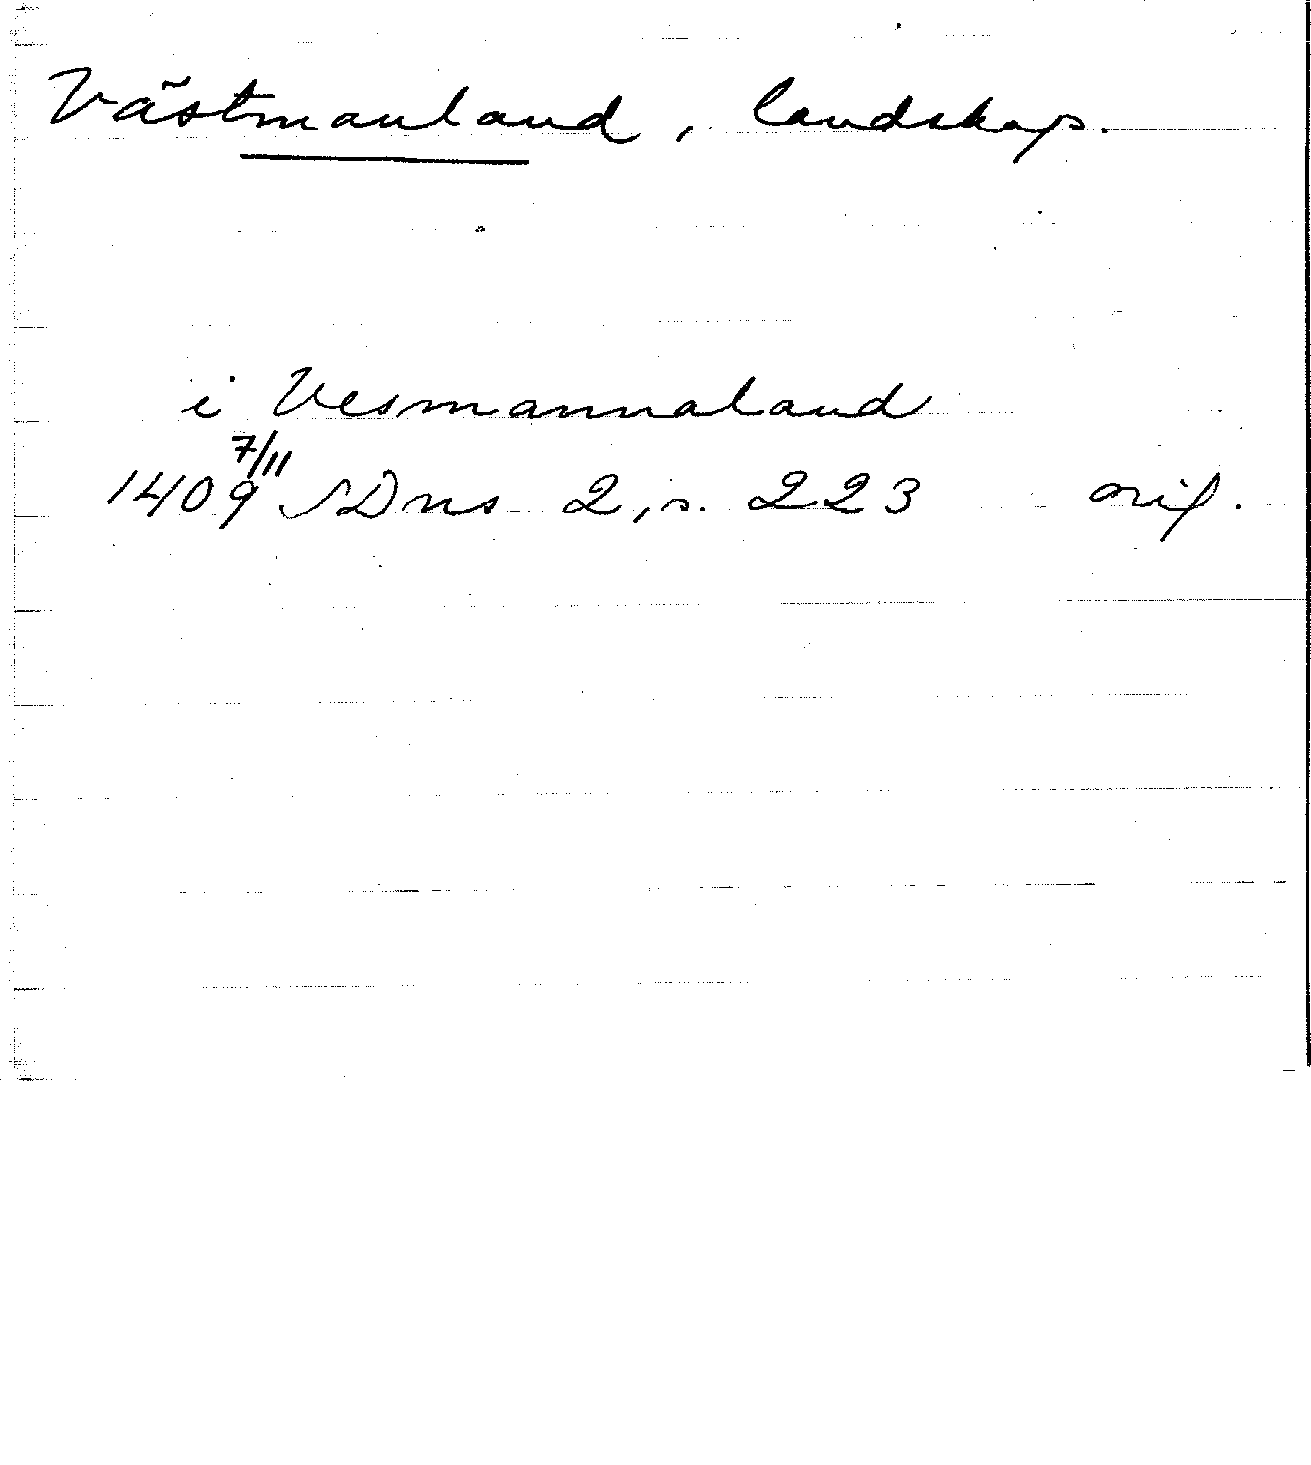 Västmanland, landskap.
i Vesmannaland
7/11
1409 SDns 2, s. 223 orig.